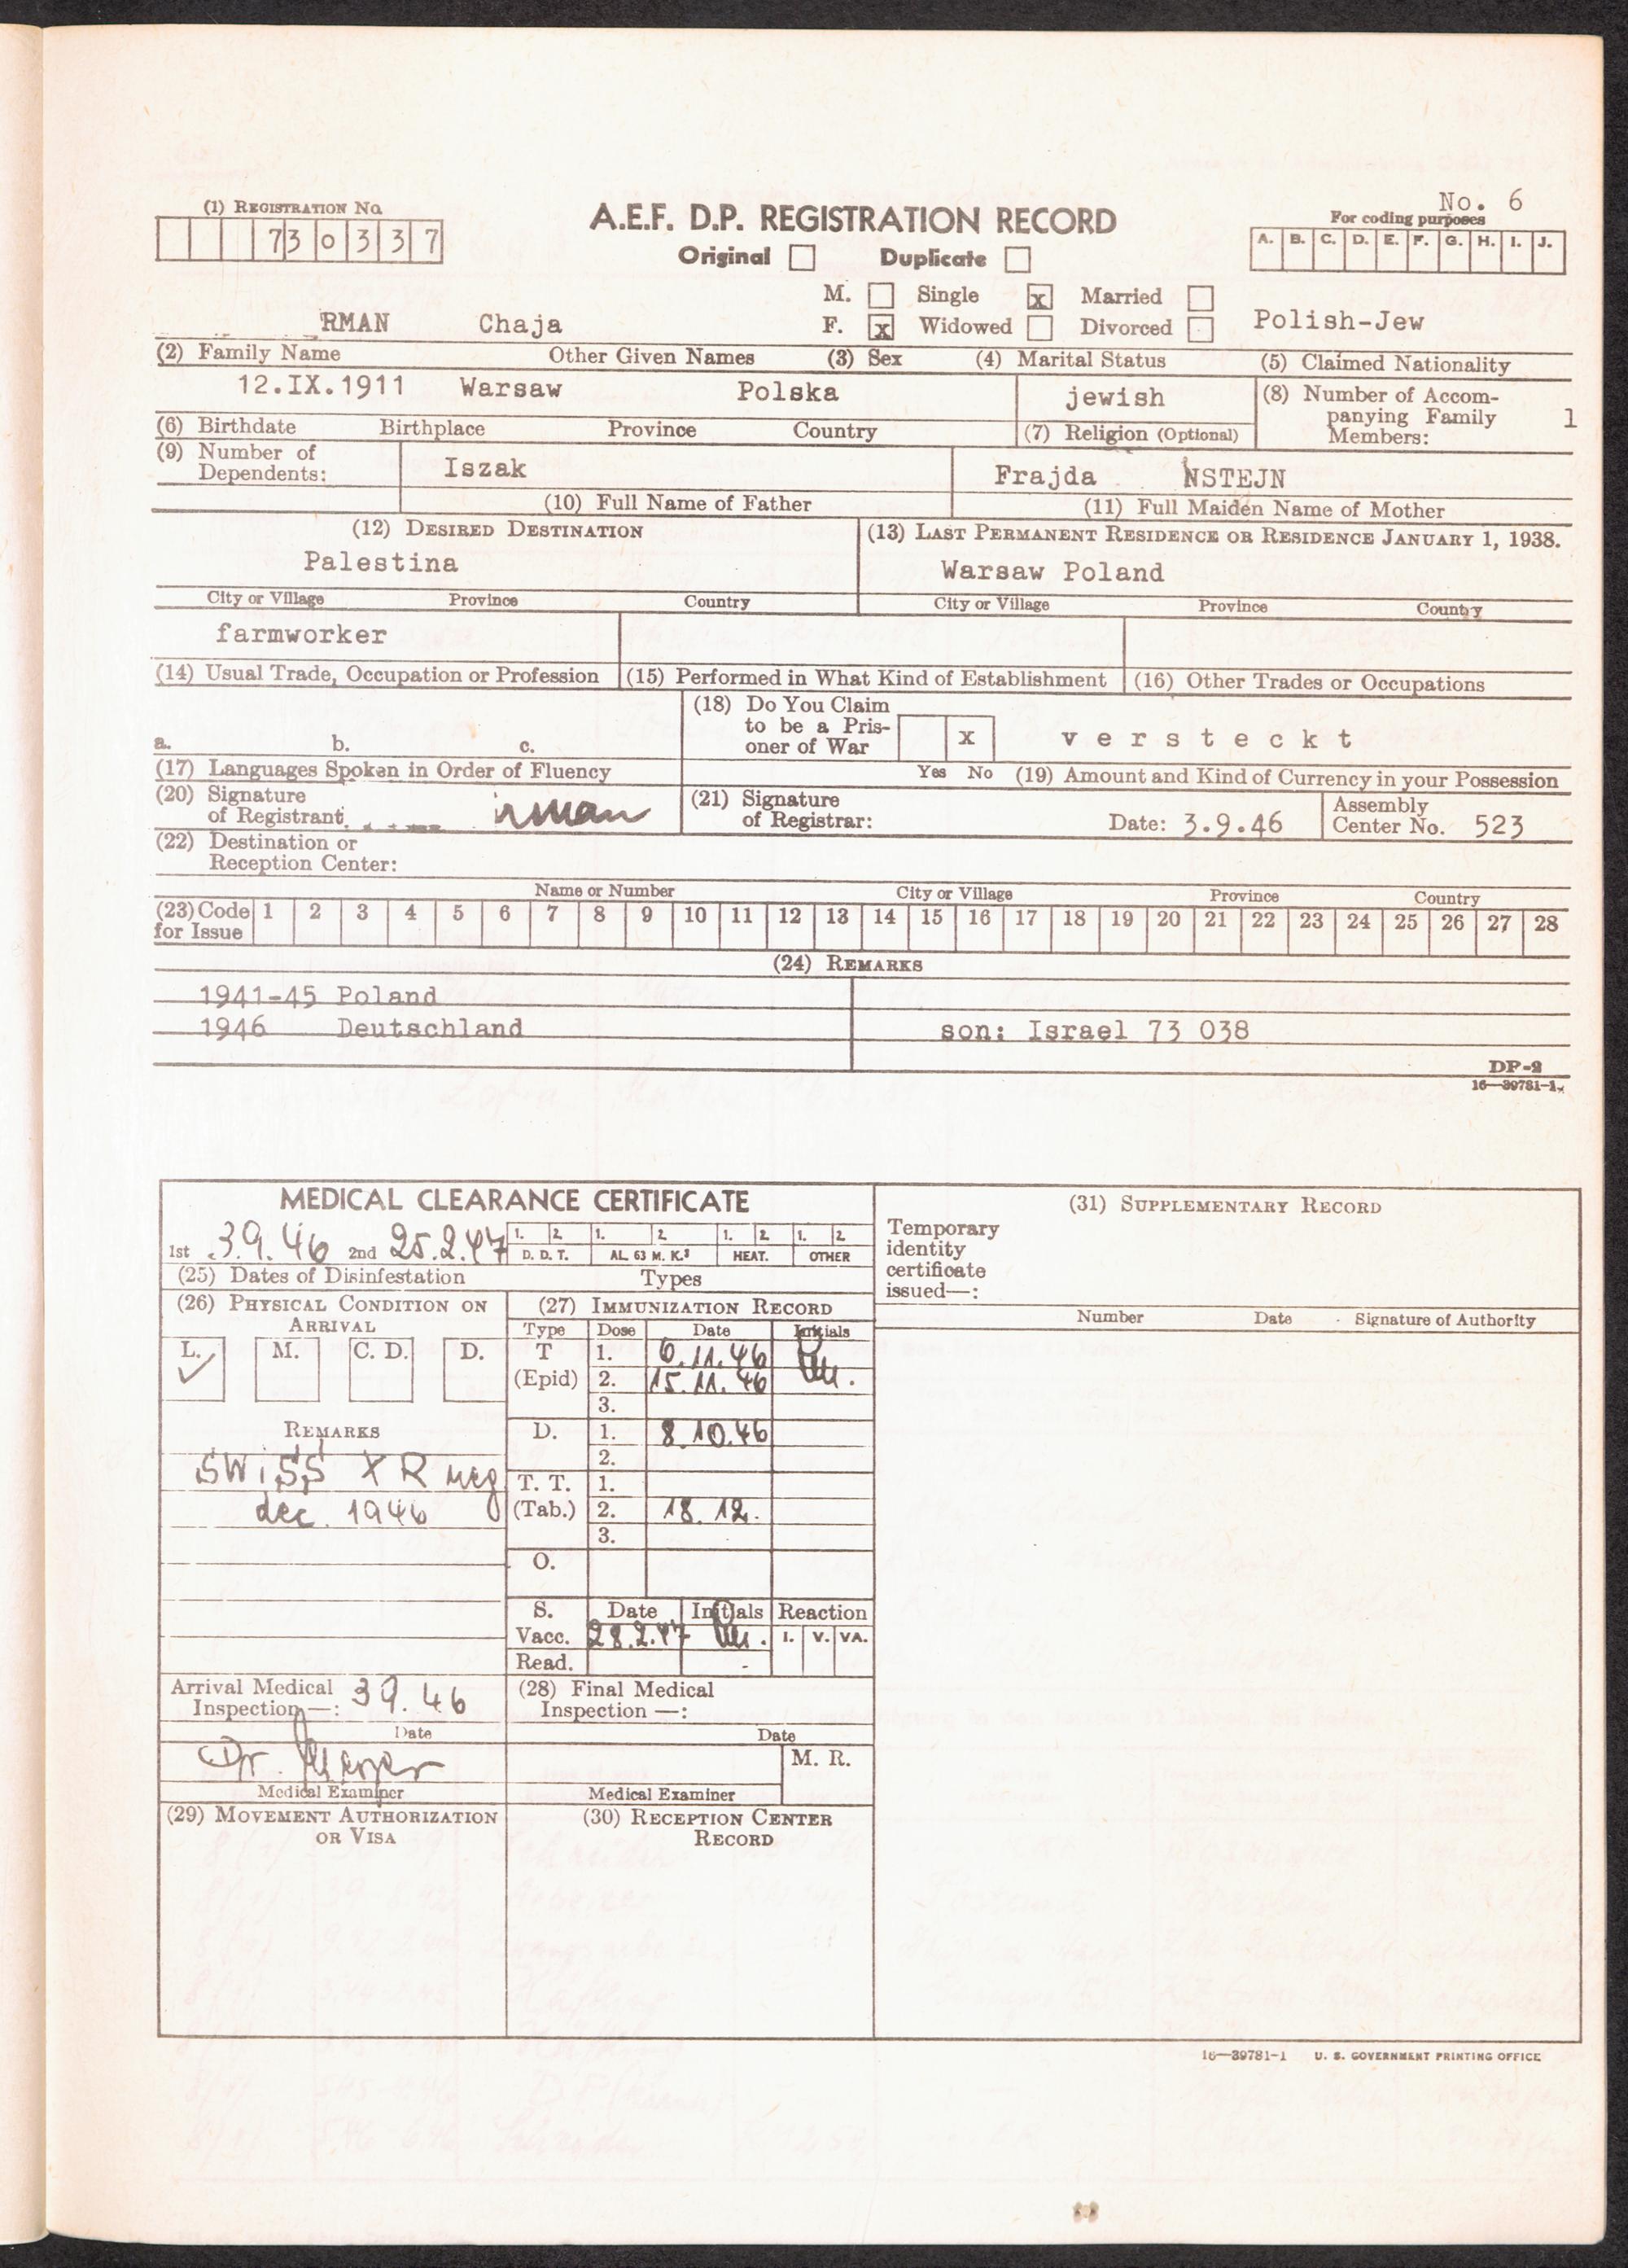 No. 6
(1) REGISTRATION No.
A.E.F. D.P. REGISTRATION RECORD
For coding purposes
730337
Original Duplicate
A. B. C. D. E. F. G. H. I. J.
M. Single x Married
RMAN Chaja F. x Widowed Divorced Polish-Jew
(2) Family Name Other Given Names (3) Sex (4) Marital Status (5) Claimed Nationality
12.IX.1911 Warsaw Polska jewish (8) Number of Accom-
panying Family 1
(6) Birthdate Birthplace Province Country (7) Religion (Optional) Members:
(9) Number of
Dependents: Iszak Frajda NSTEJN
(10) Full Name of Father (11) Full Maiden Name of Mother
(12) DESIRED DESTINATION (13) LAST PERMANENT RESIDENCE OR RESIDENCE JANUARY 1, 1938.
Palestina Warsaw Poland
City or Village Province Country City or Village Province Country
farmworker
(14) Usual Trade, Occupation or Profession (15) Performed in What Kind of Establishment (16) Other Trades or Occupations
(18) Do You Claim
to be a Pris-
oner of War x versteckt
a. b. c.
(17) Languages Spoken in Order of Fluency Yes No (19) Amount and Kind of Currency in your Possession
(20) Signature
of Registrant: rman (21) Signature
of Registrar: Date: 3.9.46 Assembly
Center No. 523
(22) Destination or
Reception Center:
Name or Number City or Village Province Country
(23) Code
for Issue 1 2 3 4 5 6 7 8 9 10 11 12 13 14 15 16 17 18 19 20 21 22 23 24 25 26 27 28
(24) REMARKS
1941-45 Poland
1946 Deutschland son: Israel 73 038
DP-2
16—39781-1
MEDICAL CLEARANCE CERTIFICATE
1st 3.9.46 2nd 25.2.47 1. 2. 1. 2. 1. 2. 1. 2.
D. D. T. AL. 63 M. K.3 HEAT. OTHER
(25) Dates of Disinfestation Types
(26) PHYSICAL CONDITION ON
ARRIVAL
L. M. C. D. D.
REMARKS
SWISS XR neg
dec. 1946
(27) IMMUNIZATION RECORD
Type Dose Date Initials
T 1. 6.11.46
(Epid) 2. 15.11.46
3.
D. 1. 8.10.46
2.
T. T. 1.
(Tab.) 2. 18.12.
3.
O.
S. Date Initials Reaction
Vacc. 28.2.47 I. V. VA.
Read.
Arrival Medical
Inspection—: 3 9. 46
Date
Dr.
Medical Examiner
(28) Final Medical
Inspection —:
Date
M. R.
Medical Examiner
(29) MOVEMENT AUTHORIZATION
OR VISA
(30) RECEPTION CENTER
RECORD
(31) SUPPLEMENTARY RECORD
Temporary
identity
certificate
issued—:
Number Date Signature of Authority
16—39781-1 U. S. GOVERNMENT PRINTING OFFICE